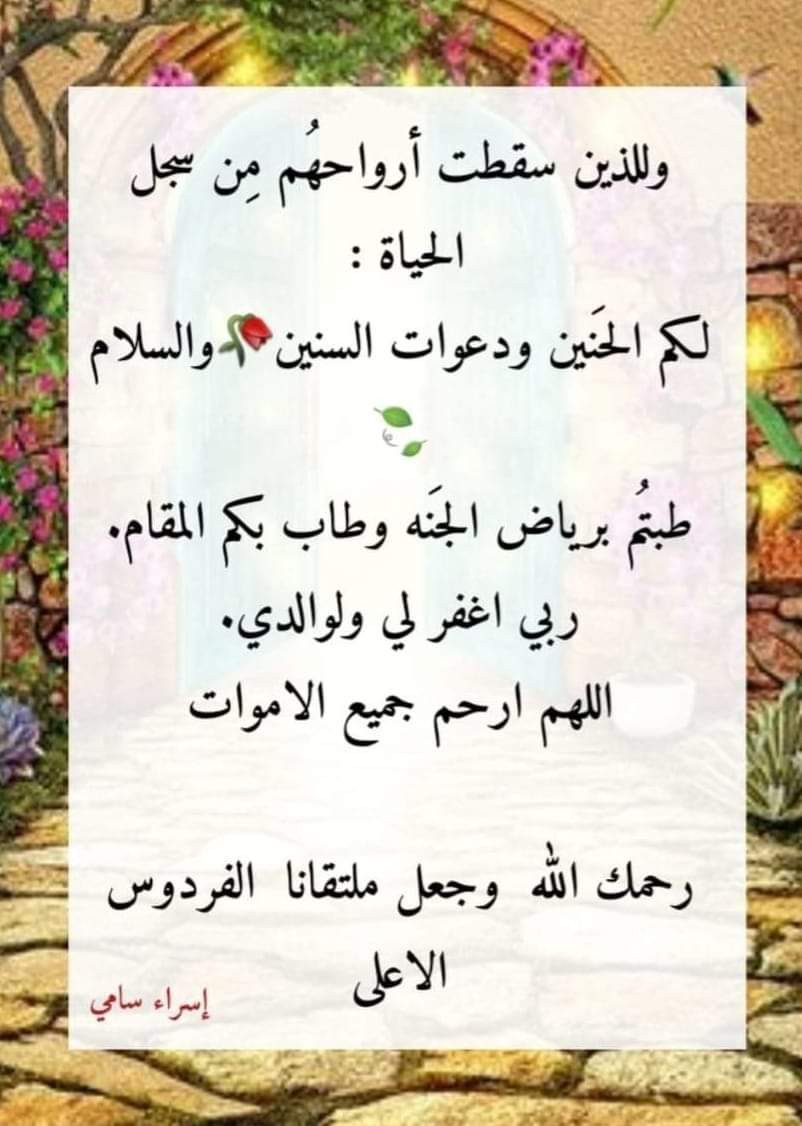 وللذين سقطت أرواحهُم مِن سجل
الحياة :
لكم الحَنين ودعوات السنين🥀والسلام
🍃
طبتُم برياض الجَنه وطاب بكم المقام.
ربي اغفر لي ولوالدي.
اللهم ارحم جميع الاموات
رحمك الله وجعل ملتقانا الفردوس
الاعلى
إسراء سامي